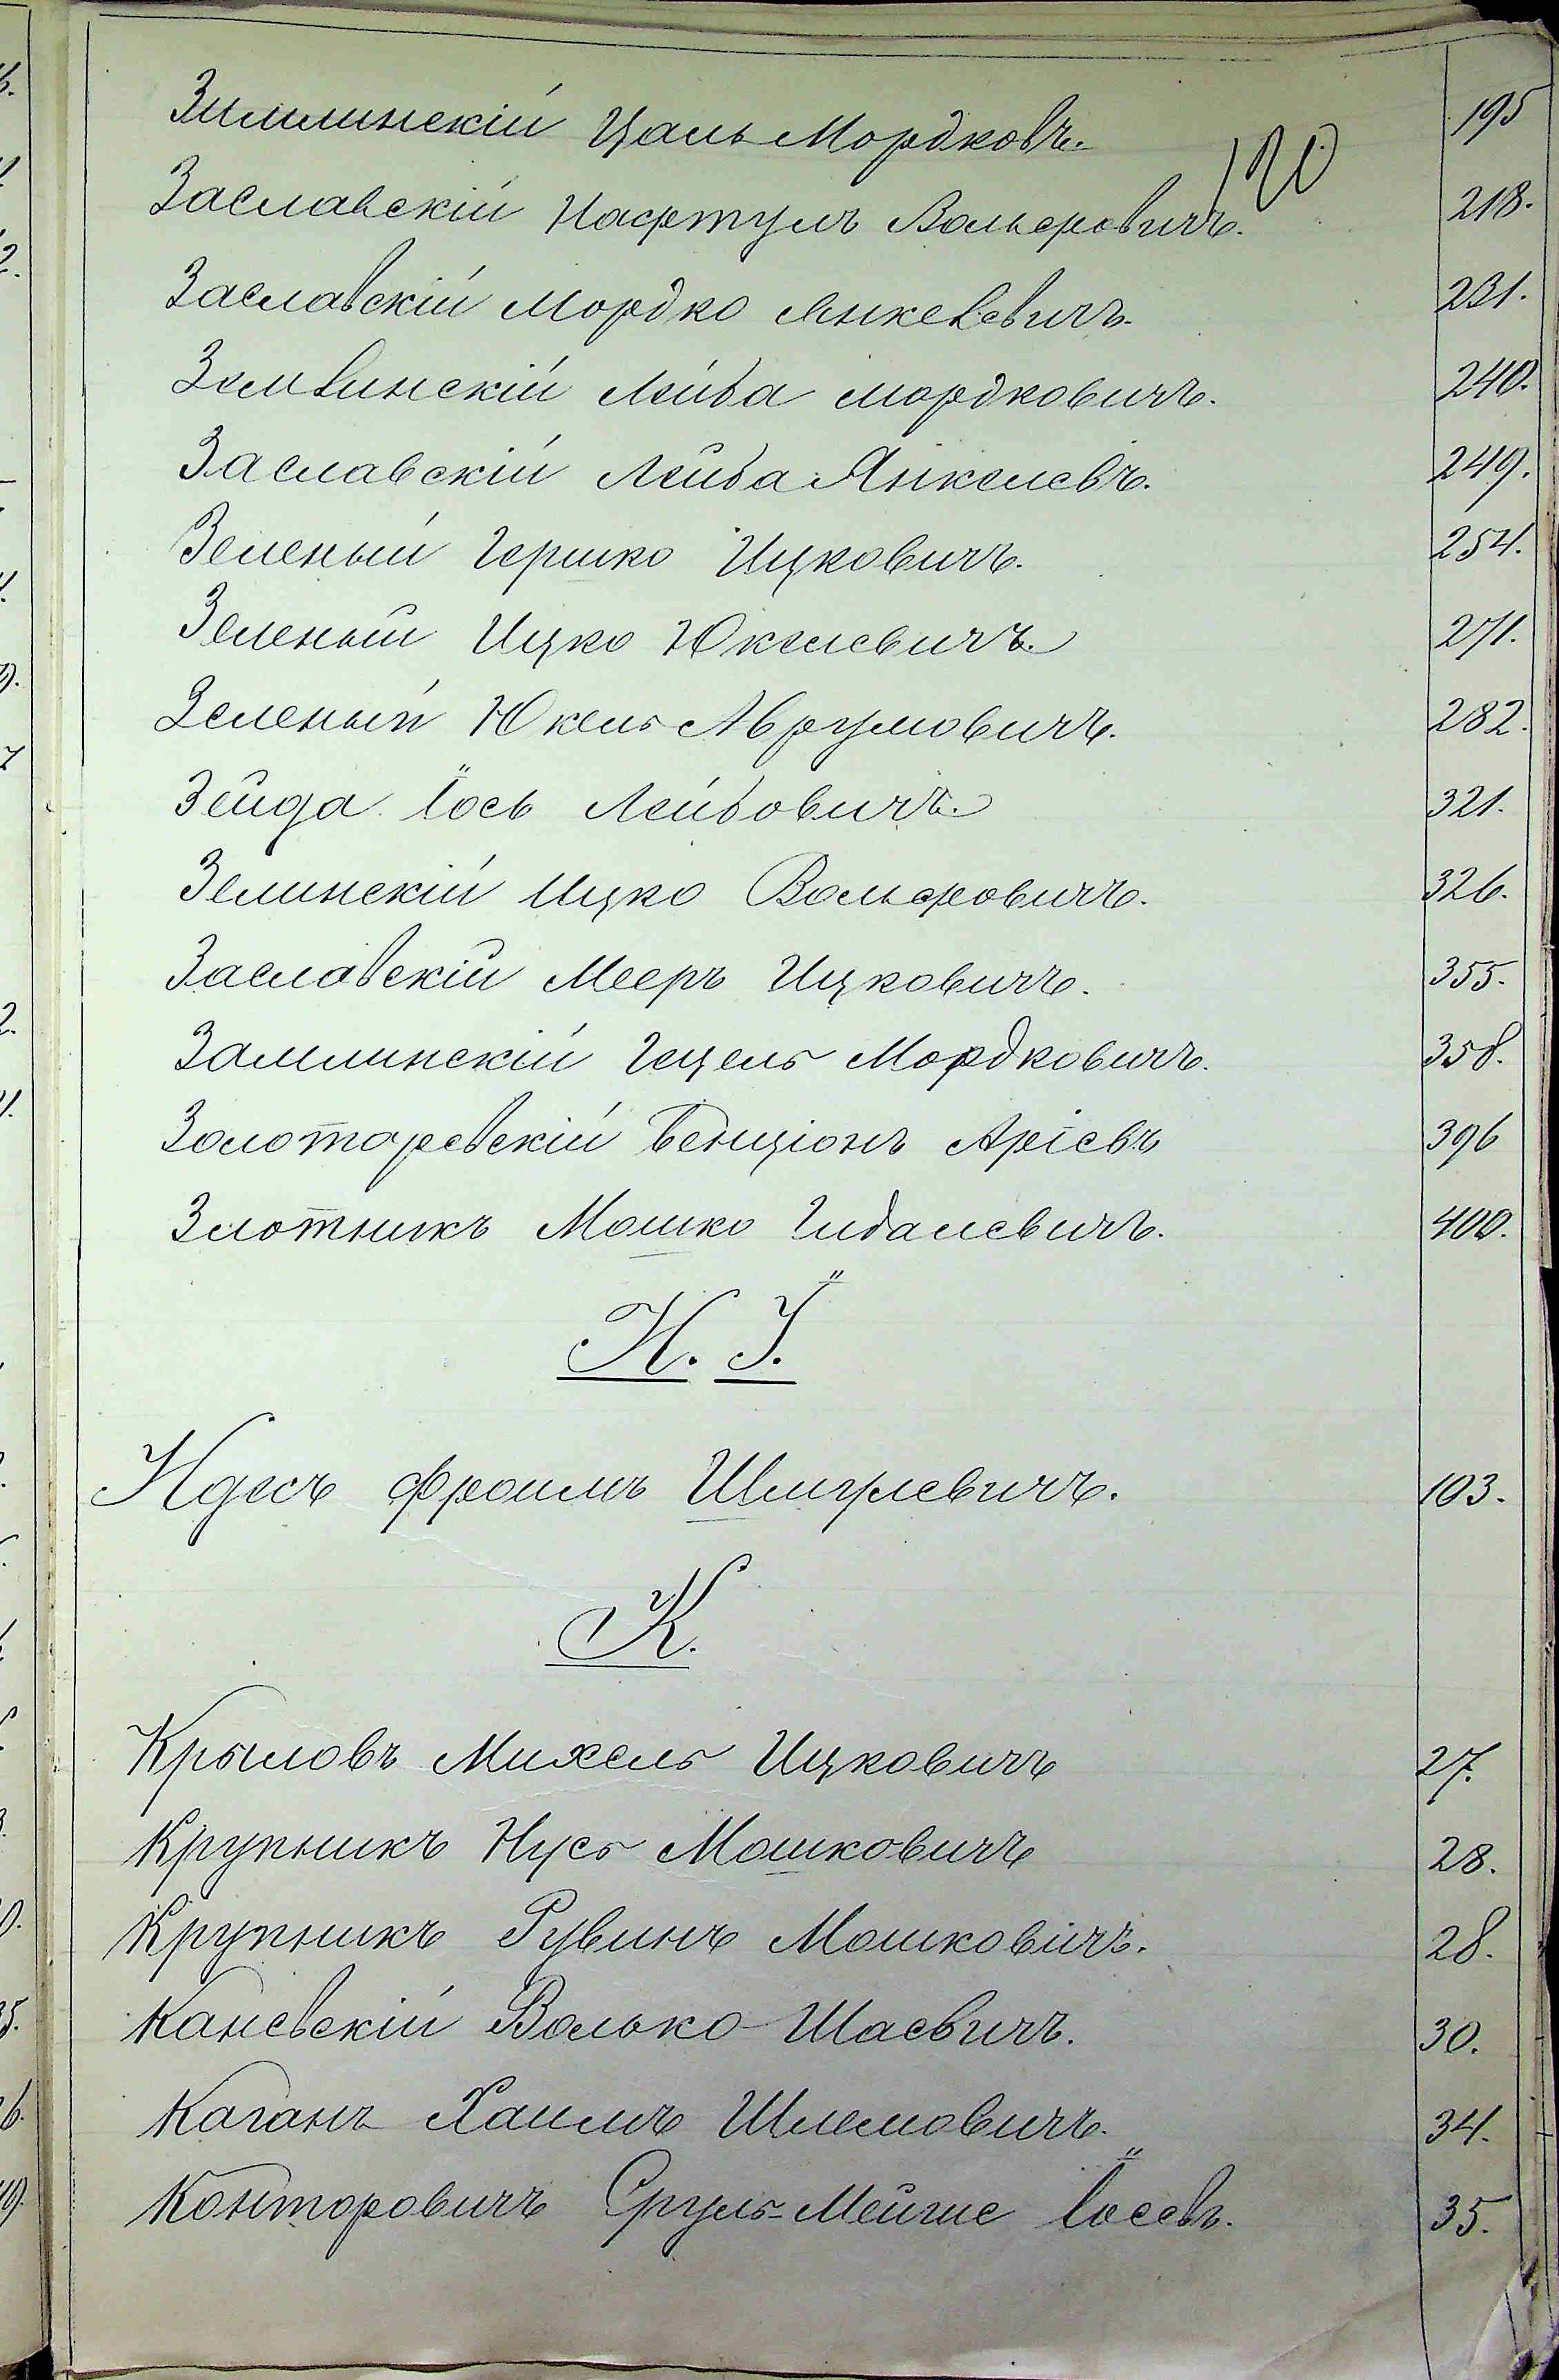 120
Зимлинскій Цаль Мордковъ. 195
Заславскій Нафтулъ Вольфовичъ. 218.
Заславскій Мордко Янкелевичъ. 231.
Земвинскій Лейба Мордковичъ. 240.
Заславскій Лейба Янкелевъ. 249.
Зеленый Гершко Ицковичъ. 254.
Зеленый Ицко Юкелевичъ. 271.
Зеленый Юкель Аврумовичъ. 282.
Зейда Іось Лейбовичъ. 321.
Зелинскій Ицко Вольфовичъ. 326.
Заславскій Мееръ Ицковичъ. 355.
Замлинскій Гецель Мордковичъ. 358.
Золотаревскій Бенціонъ Аріевъ 396
Злотникъ Мошко Гидалевичъ. 400.
И. І.
Идесъ Фроимъ Шмулевичъ. 103.
К.
Крыловъ Михель Ицковичъ 27.
Крупникъ Нусь Мошковичъ 28.
Крупникъ Рувинъ Мошковичъ. 28.
Каневскій Волько Шаевичъ. 30.
Каганъ Хаимъ Шлемовичъ. 34.
Конторовичъ Сруль-Мейше Іосевъ. 35.